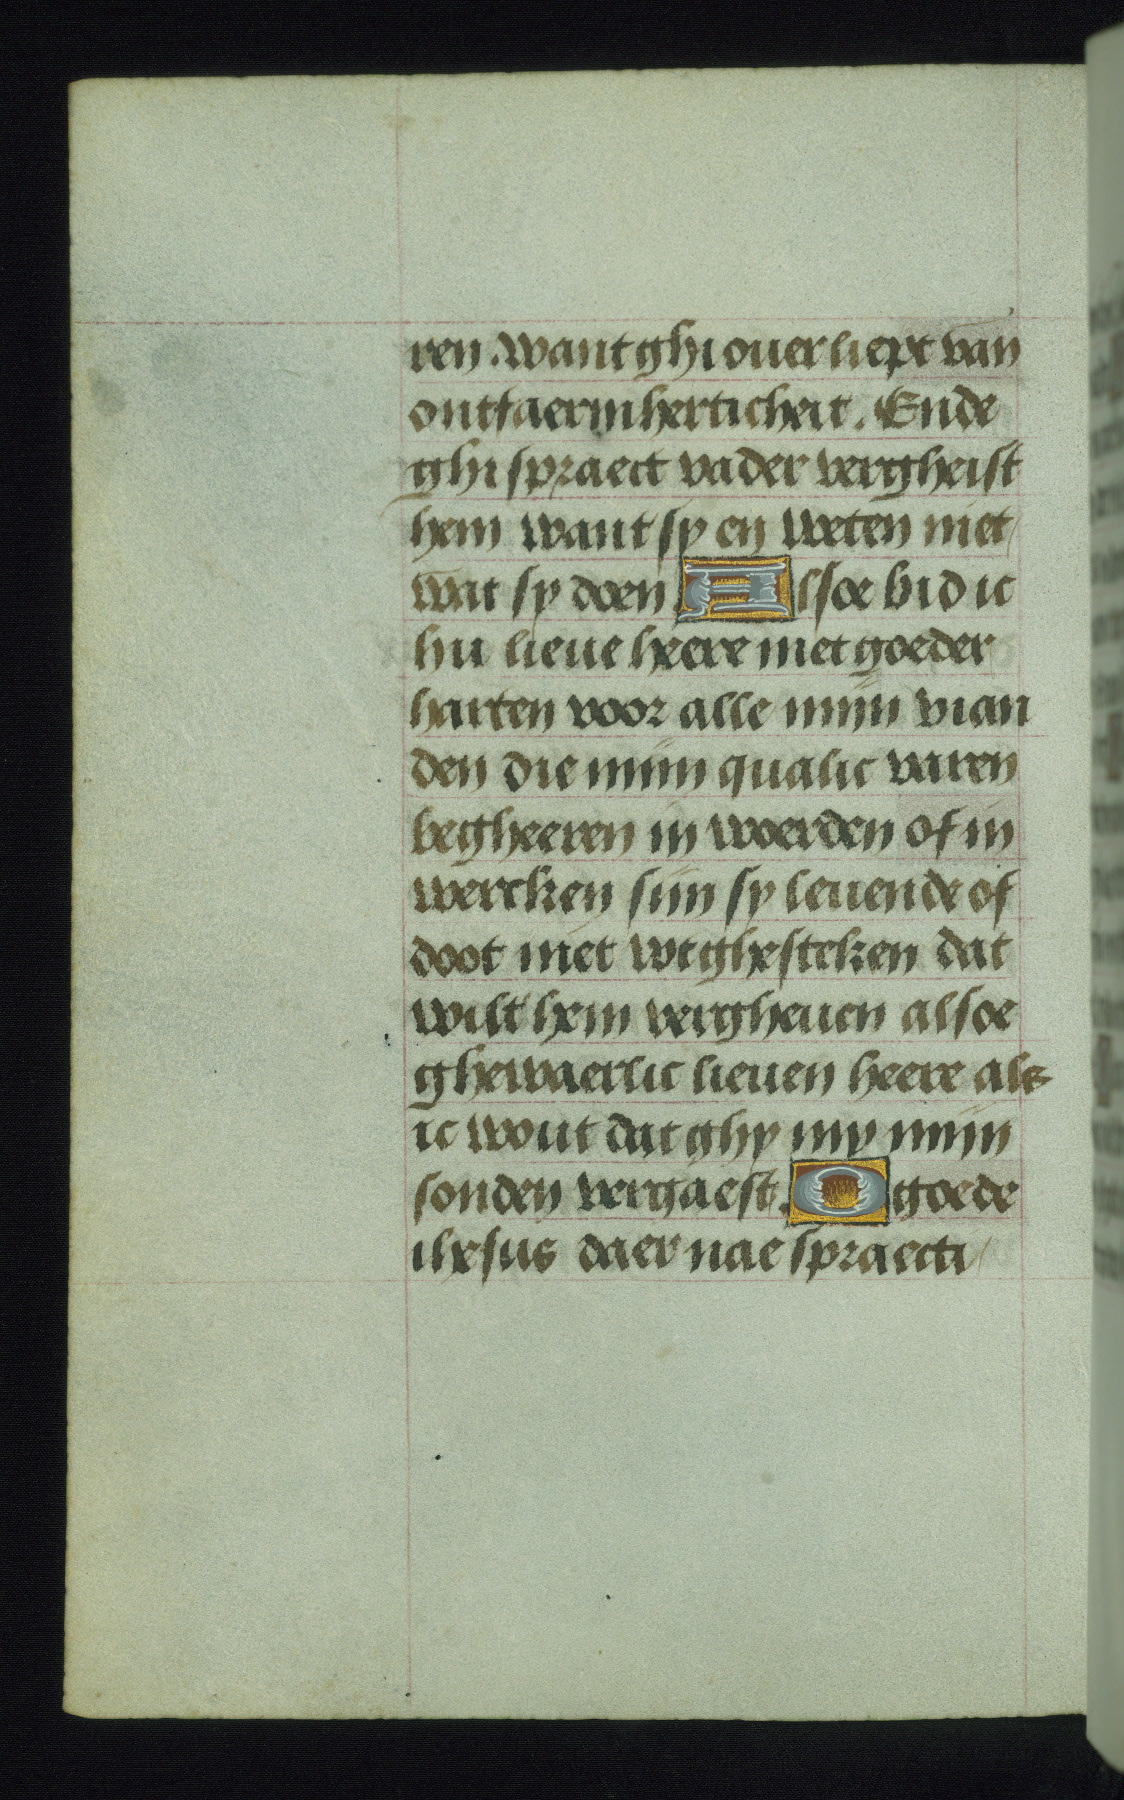 ren. want ghi ouerliept van
ontfaermherticheit. Ende
ghi spraect vader vergheist
hem want sy en weten niet
wat sy doen Alsoe bid ic
hu lieue heere met goeder
harten voor alle mijn vian
den die mijn qualic varen
begheeren in woerden of in
wercken sijn sy leuende of
doot niet wtghesteken dat
wilt hem vergheuen alsoe
ghewaerlic lieuen heere als
ic wout dat ghy my mijn
sonden vergaest. O goede
ihesus daer nae spraecti